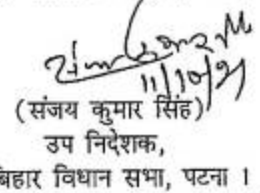 11/10/21
(संजय कुमार सिंह)
उप निदेशक,
बिहार विधान सभा, पटना ।